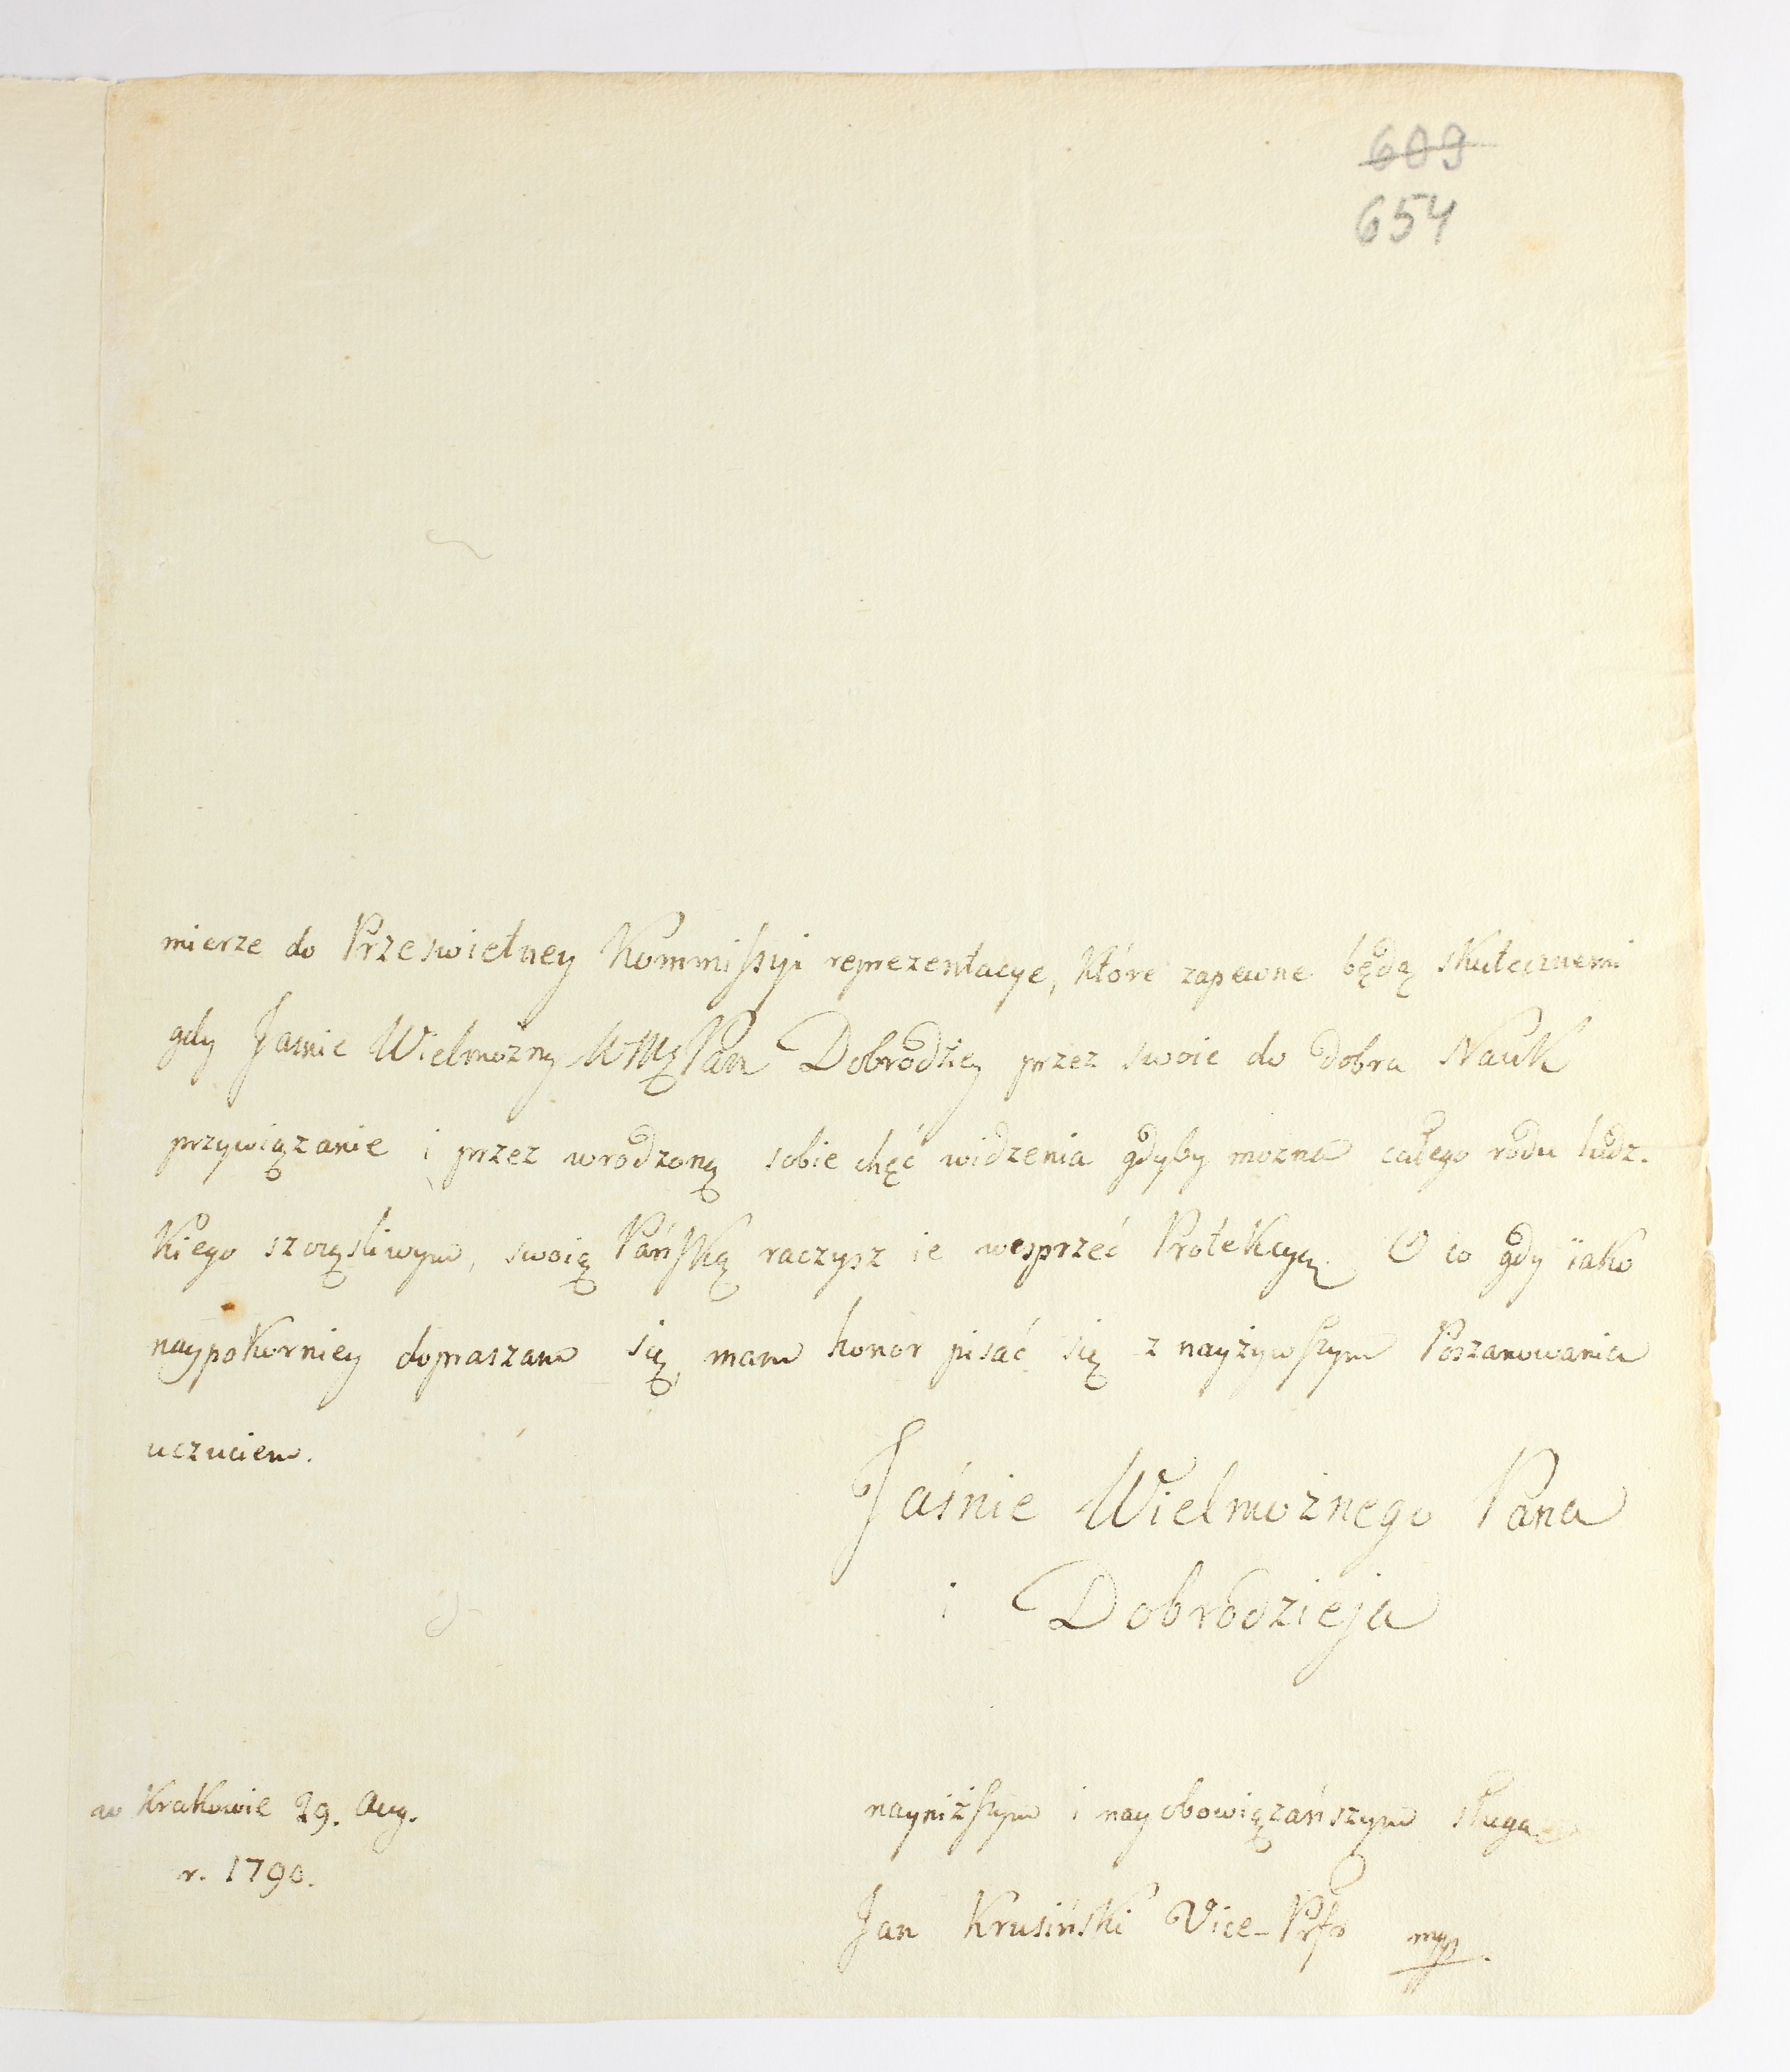 609
654
mierze do Prześwietney Kommissyi reprezentacye, które zapewne będą skutecznemi
gdy Jaśnie Wielmożny WMç Pan Dobrodziey przez swoie do dobra Nauk
przywiązanie i przez wrodzoną sobie chęć widzenia gdyby można całego rodu ludz-
kiego szczęśliwym, swoią Pańską raczysz ie wesprzeć Protekcyą. O co gdy iako
naypokorniey dopraszam się, mam honor pisać się z nayżywszym Poszanowania
uczuciem.
Jaśnie Wielmożnego Pana
i Dobrodzieja
w Krakowie 29. Aug.
r. 1790.
nayniższym i nayobowiązańszym sługą
Jan Krusiński Vice-Prfr mpp.